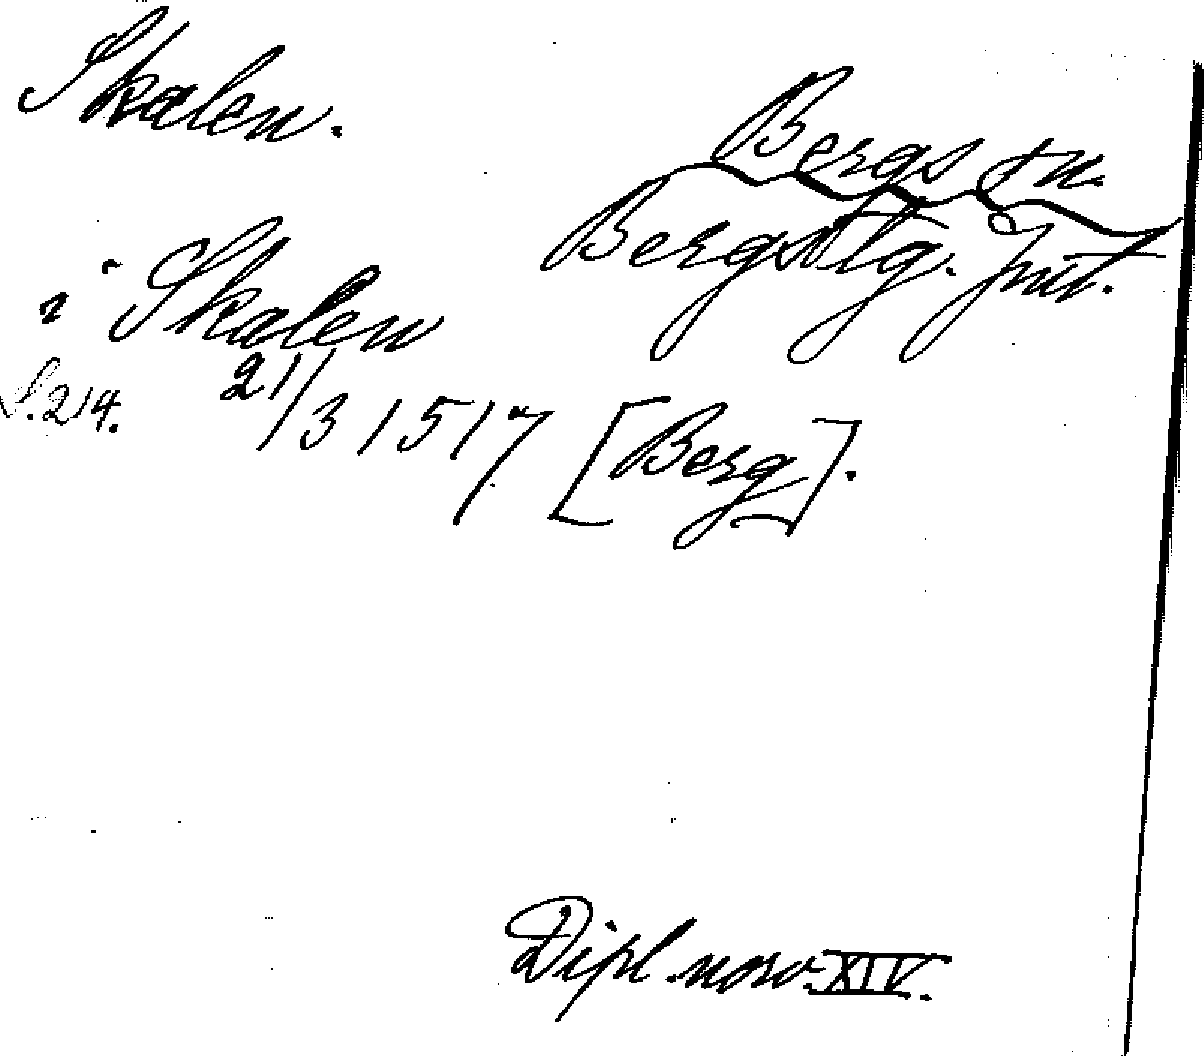 Skalen.
Bergs sn.
Bergs tg. Jmt.
i Skalen
S. 214. 21/3 1517 [Berg].
Dipl. norv. XIV.